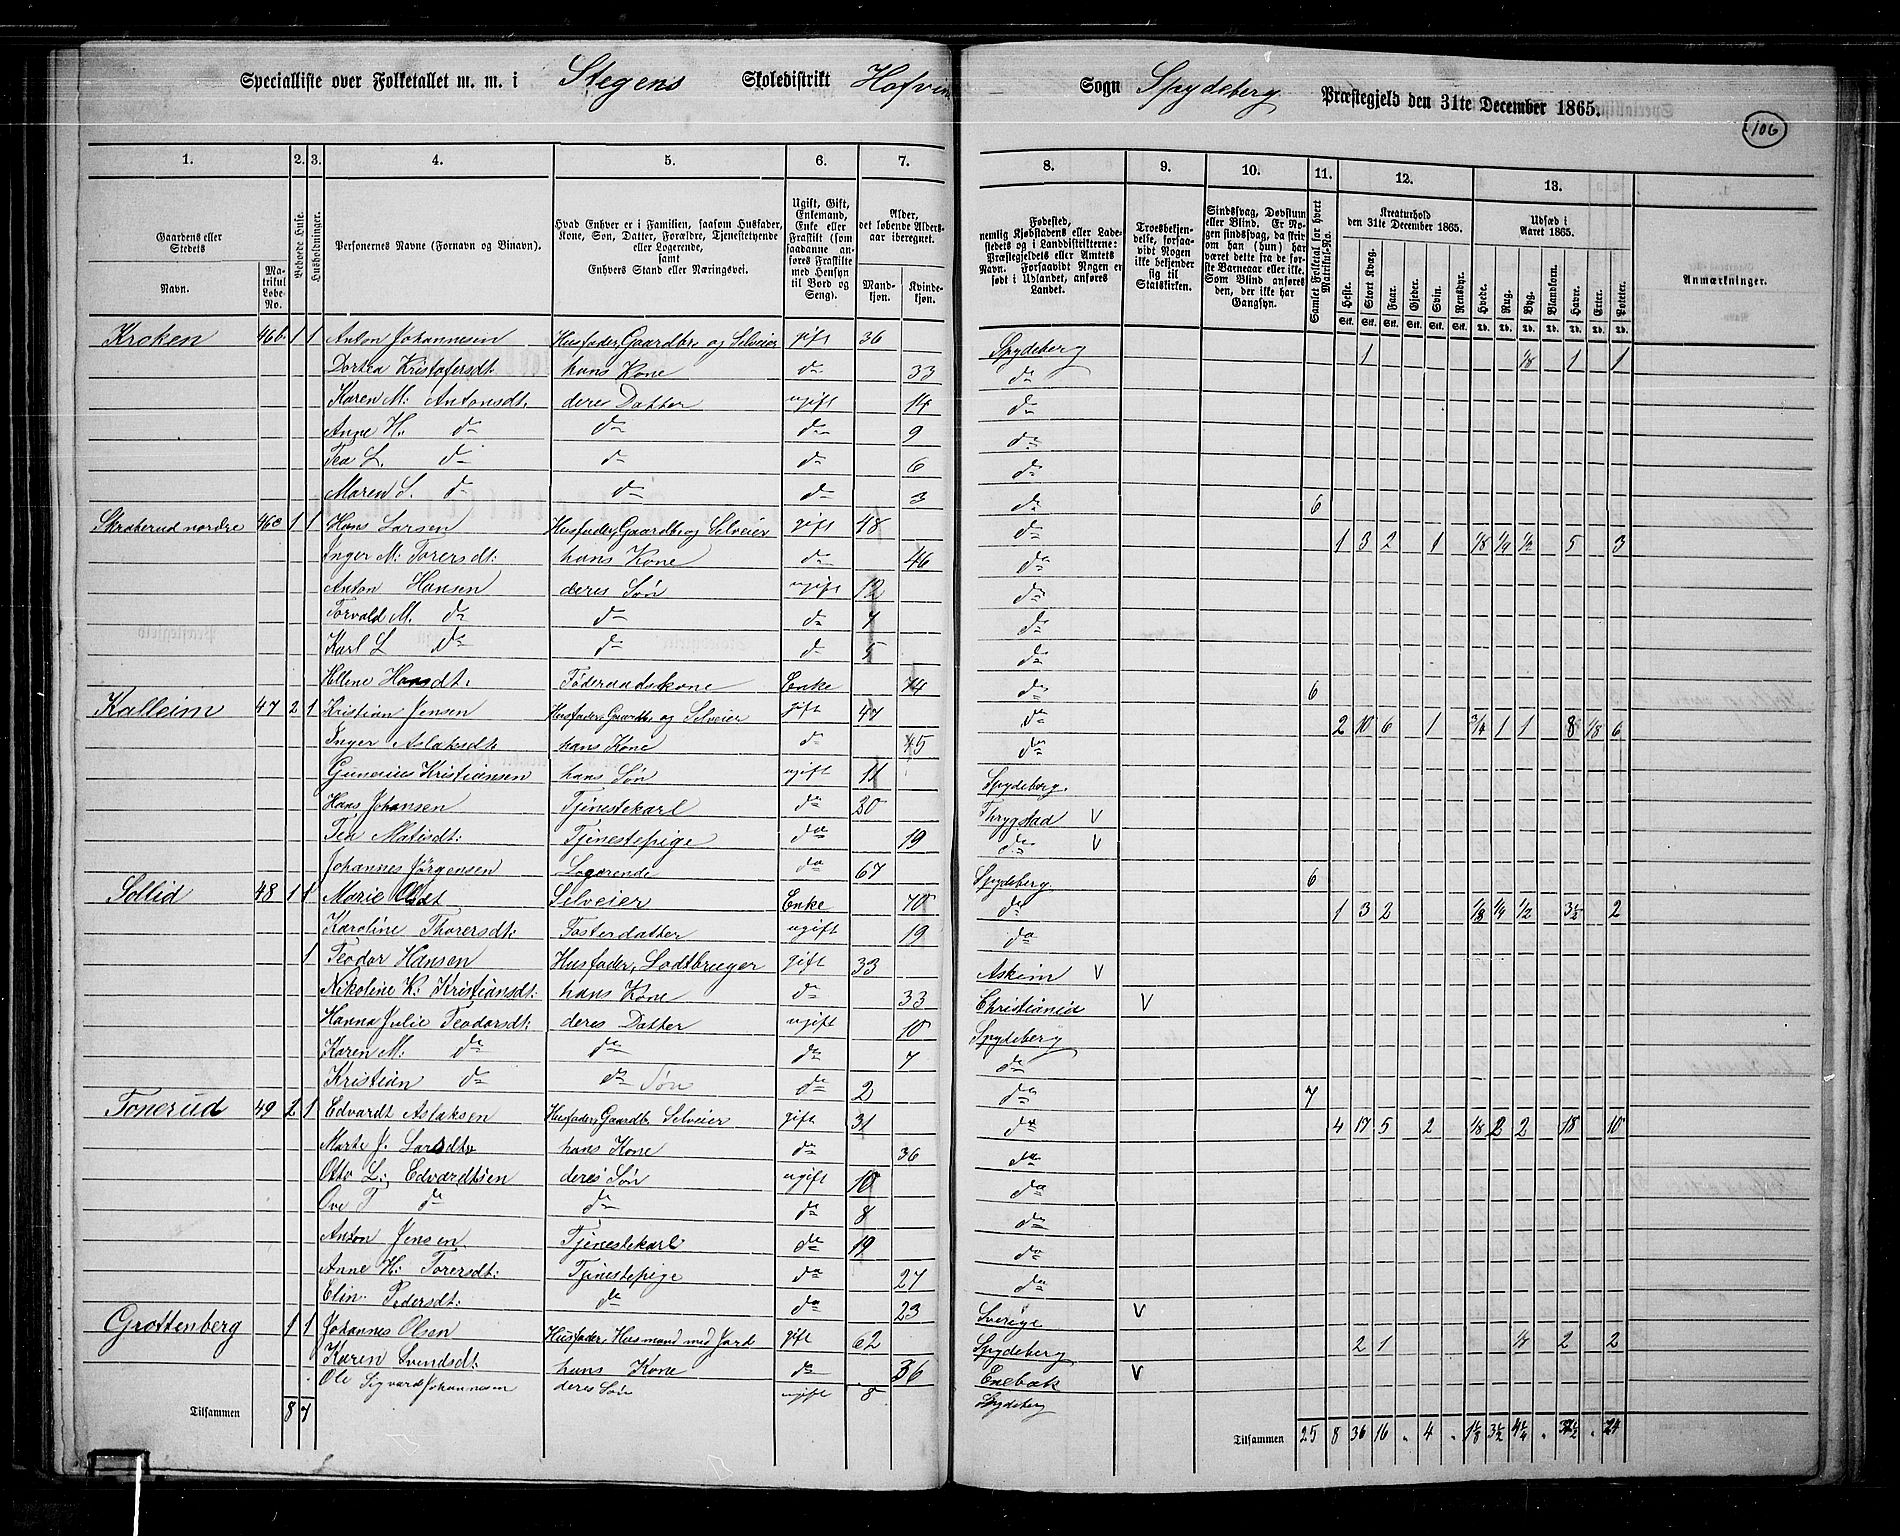 Specialliste over Folketallet m. m. i Stegens Skoledistrikt Hofvin Sogn Spydeberg Præstegjeld den 31te December 1865.
106
1. 2. 3. 4. 5. 6. 7. 8. 9. 10. 11. 12. 13.
Gaardens eller Stedets Navn. Matrikul Løbe-No.
Beboede Huse.
Husholdninger.
Personernes Navne (Fornavn og Binavn).
Hvad Enhver er i Familien, saasom Husfader, Kone, Søn, Datter, Forældre, Tjenestetyende eller Logerende, samt Enhvers Stand eller Næringsvei.
Ugift, Gift, Enkemand, Enke eller Fraskilt (som saadanne anføres Fraskilte med Hensyn til Bord og Seng).
Alder, det løbende Aldersaar iberegnet. Mandkjøn. Kvindekjøn.
Fødested, nemlig Kjøbstadens eller Ladestedets og i Landdistrikterne: Præstegjeldets eller Amtets Navn. Forsaavidt Nogen er født i Udlandet, anføres Landet.
Troesbekjendelse, forsaavidt Nogen ikke bekjender sig til Statskirken.
Sindssvag, Døvstum eller Blind. Er Nogen sindssvag, da skrives om han (hun) har været dette fra de første Barneaar eller ikke. Som Blind anføres den, der ikke har Gangsyn.
Samlet Folketal for hvert Matrikul-No.
Kreaturhold den 31te December 1865. Heste. Stort Kvæg. Faar. Gjeder. Svin. Rensdyr.
Udsæd i Aaret 1865. Hvede. Rug. Byg. Blandkorn. Havre. Erter. Poteter.
Anmærkninger.
Kroken 46b. 1 1 Anton Johannesen Husfader, Gaardbr. og Selveier gift 36 Spydeberg 1 1/8 1 1
Dortea Kristofersdt. hans Kone do 33 do
Karen M. Antonsdt. deres Datter ugift 14 do
Anne H. do do do 9 do
Tea L. do do do 6 do
Maren S. do do do 3 do 6
Skraterud nordre 46c 1 1 Hans Larsen Husfader, Gaardbr og Selveier gift 48 do 1 3 2 1 1/8 1/4 1/2 5 3
Inger M. Torersdt. hans Kone do 46 do
Anton Hansen deres Søn ugift 12 do
Torvald M. do do do 7 do
Karl L do do do 5 do
Hellene Hansdt. Föderaadskone Enke 74 do 6
Kalleim 47 2 1 Kristian Jensen Husfader, Gaardbr. og Selveier gift 47 do 2 10 6 1 3/4 1 1 8 1/8 6
Inger Aslaksdt. hans Kone do 45 do
Gunerius Kristiansen hans Søn ugift 11 Spydeberg.
Hans Johansen Tjenestekarl do 20 Thrygstad V
Tea Matisdt: Tjenestepige do 19 do V
Johannes Jørgensen Logerende do 67 Spydeberg 6
Sollid 48 1 1 Marie Olsdt Selveier Enke 70 do 1 3 2 1/8 1/4 1/2 3½ 2
Karoline Thorersdt: Fosterdatter ugift 19 do
1 Teodor Hansen Husfader, Lodtbruger gift 33 Askim V
Nikoline K: Kristiansdt: hans Kone do 33 Christiania V
Hanna Julie Teodorsdt: deres Datter ugift 10 Spydeberg
Karen M: do do do 7 do
Kristian do do Søn do 2 do 7
Tonerud 49 2 1 Edvardt Aslaksen Husfader, Gaardbr. Selveier gift 31 do 4 17 5 2 1/8 2 2 18 10
Marte J. Larsdtr hans Kone do 36 do
Otto L: Edvardtsen deres Søn ugift 10 do
Ove T do do do 8 do
Anton Jensen Tjenestekarl do 19 do
Anne H: Torersdt: Tjenestepige do 27 do
Elin Pedersdt: do do 23 Sverige V
Grottenberg 1 1 Johannes Olsen Husfader, Husmand med Jord gift 62 Spydeberg 2 1 2 2
Karen Svendsdt: hans Kone do 36 Enebak V
Ole Sigvard Johannesen deres Søn ugift 8 Spydeberg
Tilsammen 8 7 Tilsammen 25 8 36 16 „ 4 „ 1⅛ 3½ „ „ 24